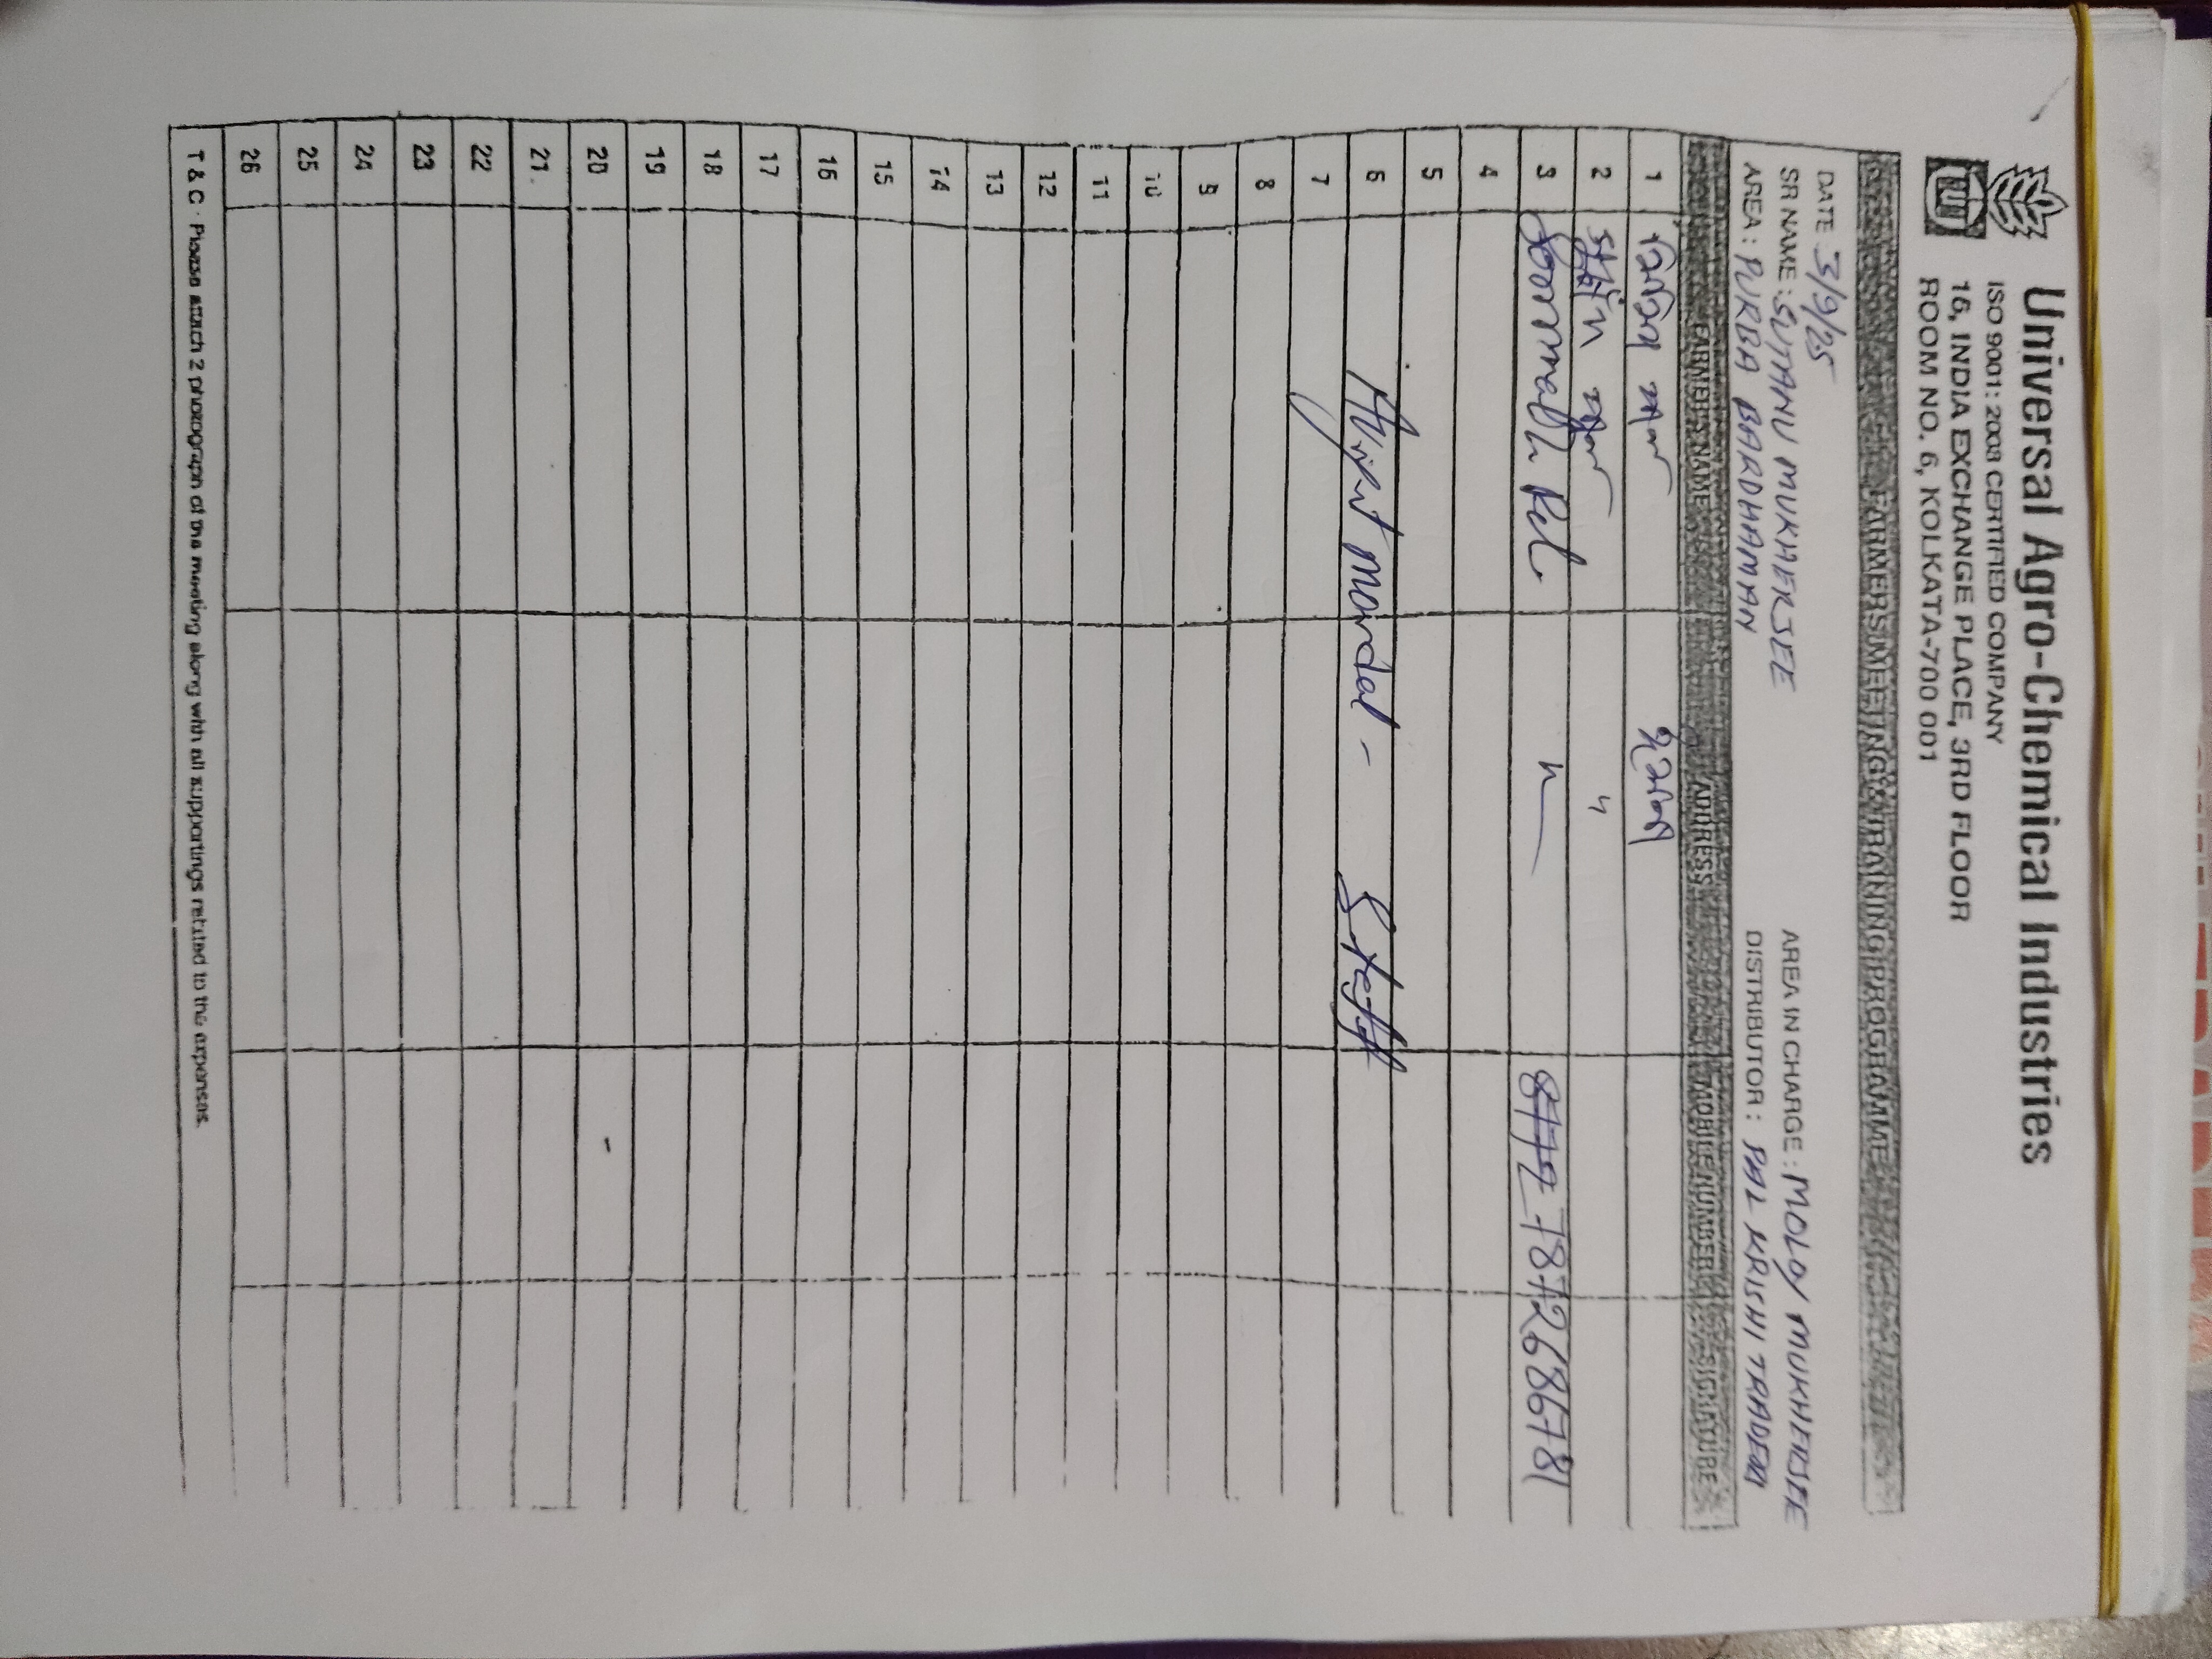 Universal Agro-Chemical Industries
ISO 9001: 2008 CERTIFIED COMPANY
16, INDIA EXCHANGE PLACE, 3RD FLOOR
ROOM NO. 6, KOLKATA-700 001
FARMERS MEETING & TRAINING PROGRAMME
DATE 3/9/25
SR NAME : SUTANU MUKHERJEE AREA IN CHARGE : MOLOY MUKHERJEE
AREA : PURBA BARDHAMAN DISTRIBUTOR : PAL KRISHI TRADERS
FARMER'S NAME ADDRESS MOBILE NUMBER SIGNATURE
1
2 "
3 7872686781
4
5
6 mondal - Staff
7
8
9
10
11
12
13
14
15
16
17
18
19
20
21
22
23
24
25
26
T & C : Please attach 2 photograph of the meeting along with all supportings related to the expenses.